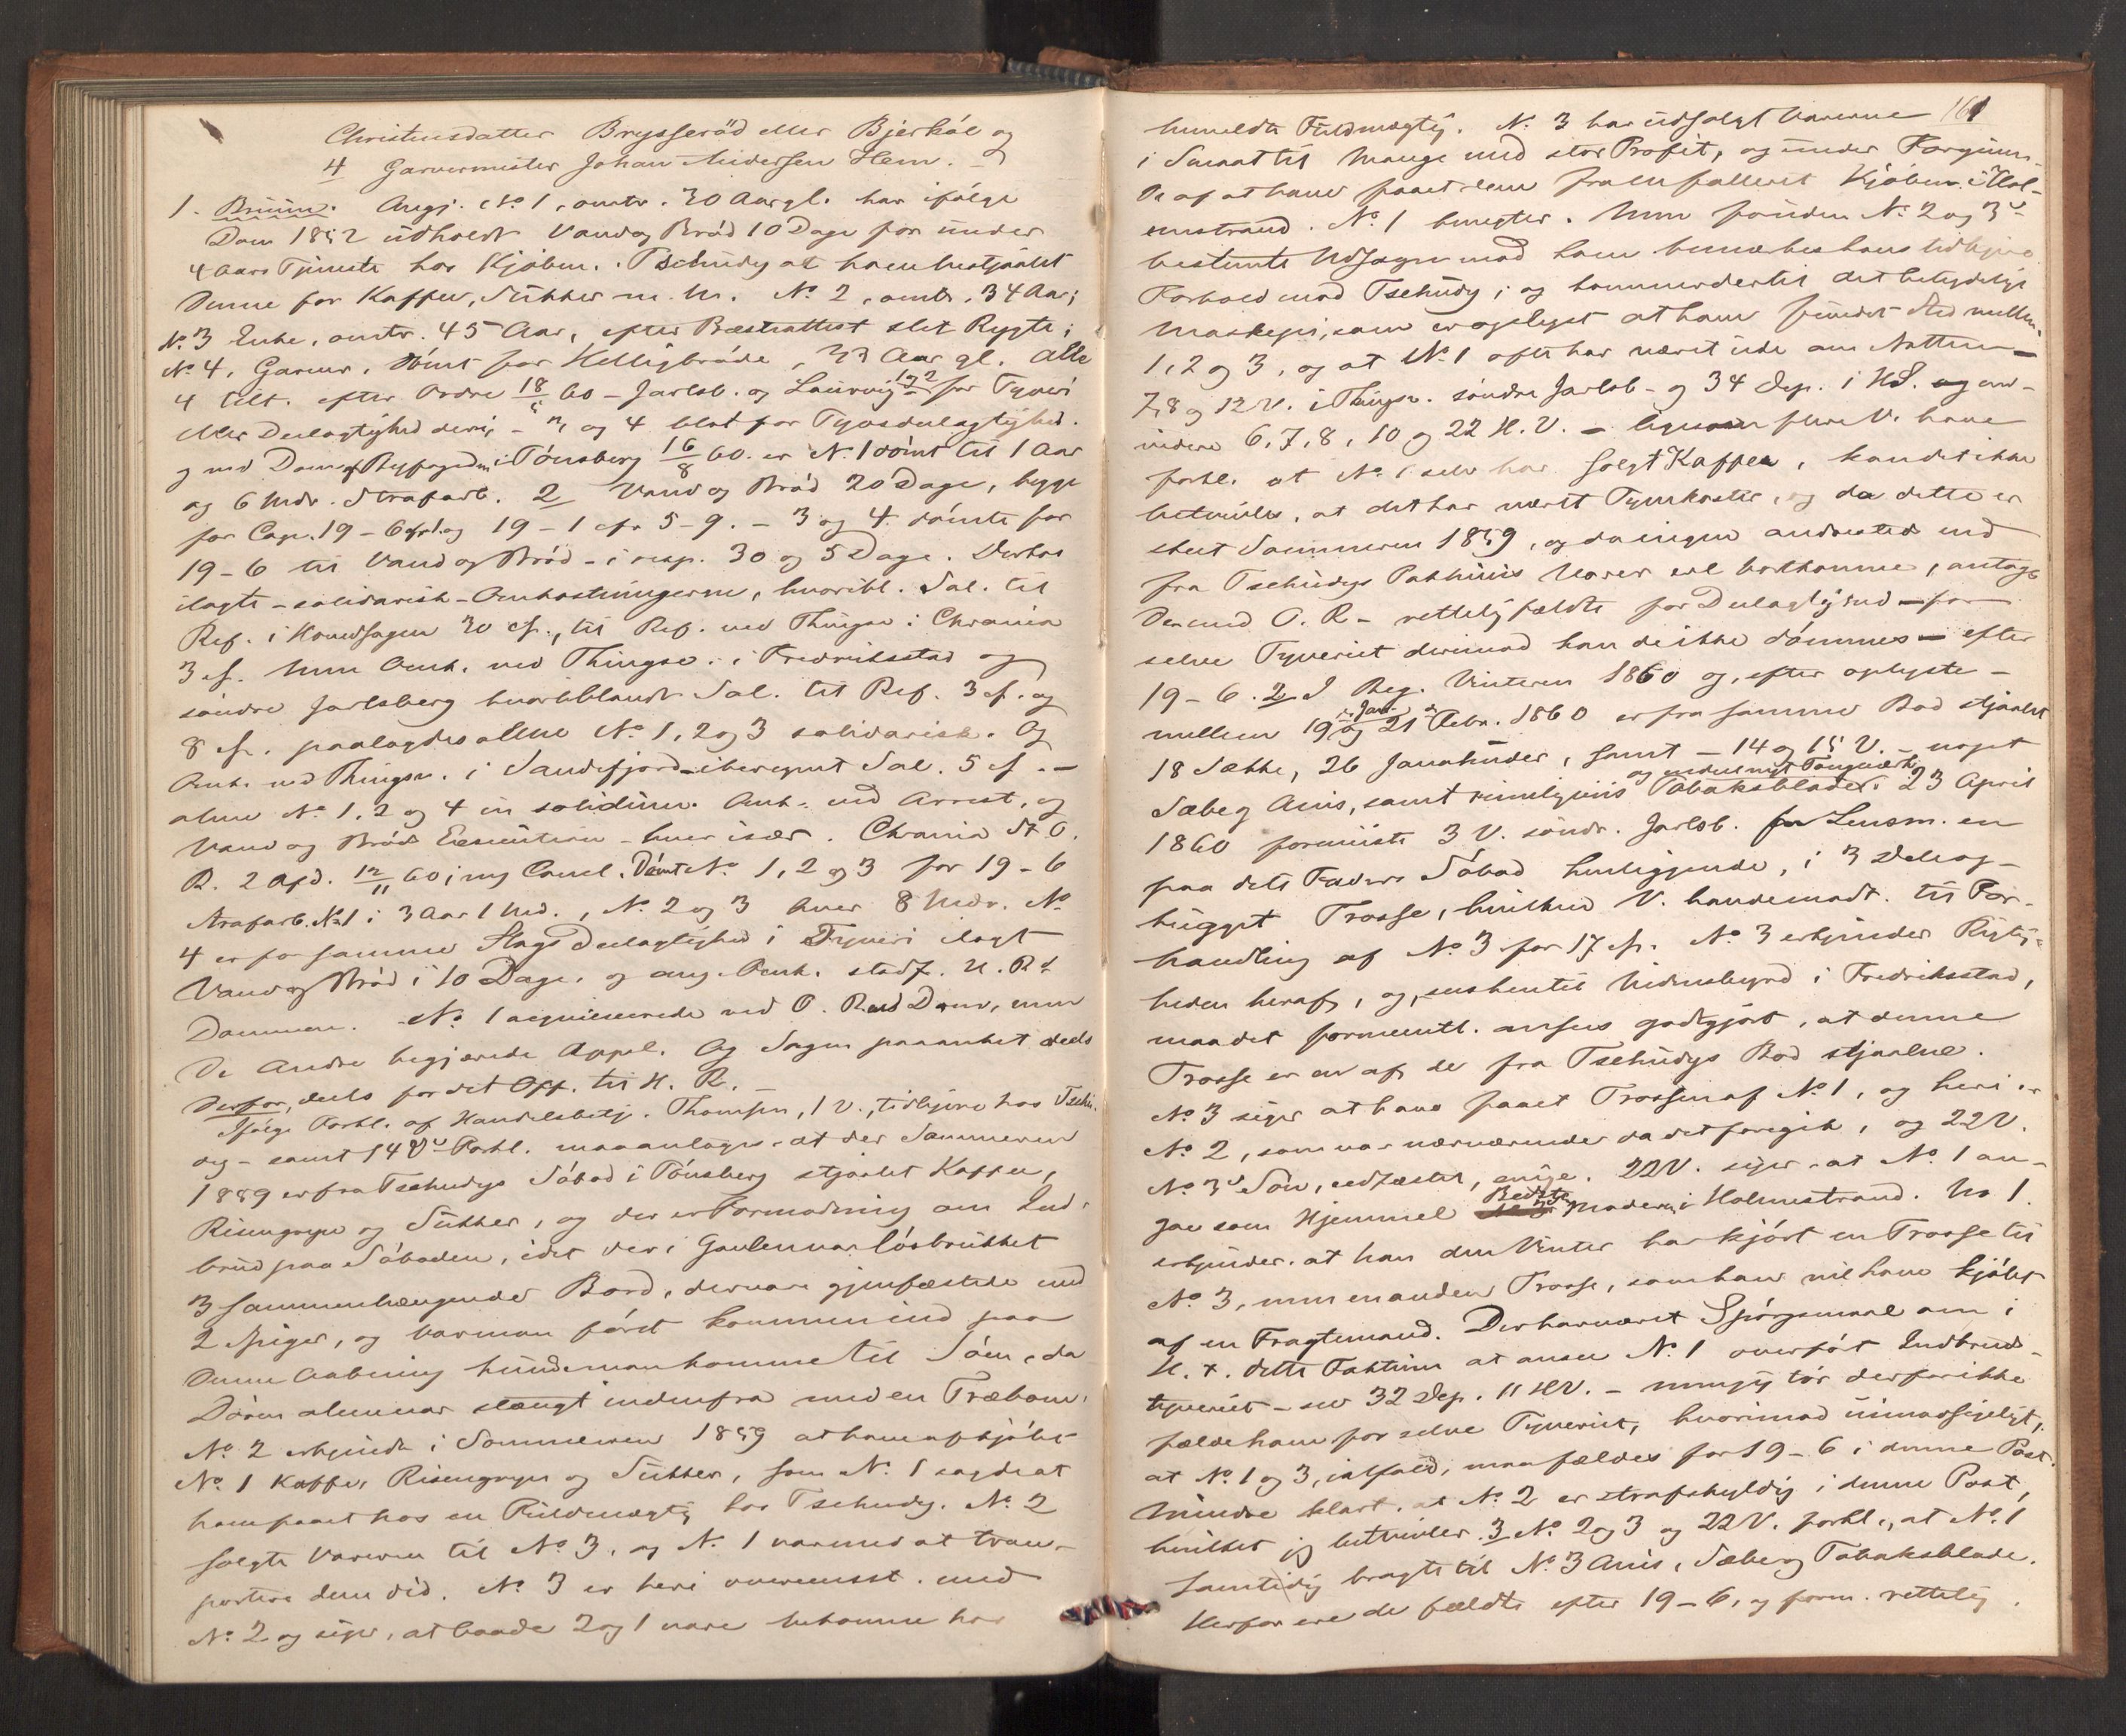 Christensdatter Brysseröd eller Bjerkól og
4 Garvermester Johan Andersen Hem.
1. Bruun. Angj. No 1, omtr. 30 Aar gl. har ifølge
Dom 1852 udholdt Vand og Brød 10 Dage for under
4 Aars Tjeneste hos Kjøbm. Tschudy at have bestjaalet
denne for Kaffee, Sukker m. M. No 2, omtr. 34 Aar;
No 3 Enke, omtr. 45 Aar, efter Præsteattest slet Rygte;
No 4, Garver, dömt for Helligbrøde, 33 Aar gl. Alle
4 tilt. efter Ordre 18/5 60 – Jarlsb. og Laurvig for Tyveri
eller Deelagtighed deri, og 4 blot for Tyvsdeelagtighed.
og ved Dom af Byfogden i Tönsberg 16/8 60. er No 1 dömt til 1 Aar
og 6 Mdr. Strafarb. 2 Vand og Brød 20 Dage, begge
for Cap. 19 – 6 og 19 – 1 cfr 5 – 9. – 3 og 4 dömte for
19 – 6 til Vand og Brød – i resp. 30 og 5 Dage. Derhos
ilagte – solidarisk – Omkostningerne, hvoribl. Sal. til
Ref. i Hovedsagen 30 Sp., til Ref. ved Thingsv. i Chrania
3 Sp. Men Omk. ved Thingsv. i Fredriksstad og
söndre Jarlsberg hvoriblandt Sal. til Ref. 3 Sp. og
8 Sp. paalagdes alene No 1, 2 og 3 solidarisk. Og
Omk. ved Thingsv. i Sandefjord – iberegnet Sal. 5 Sp. –
alene No 1, 2 og 4 in solidum. Omk. ved Arrest, og
Vand og Brøds Execution – hver især. Chrania St. O.
R. 2 Afd. 12/11 60, Dömt No 1, 2 og 3 for 19 – 6
Strafarb. No 1 i 3 Aar 1 Md., No 2 og 3 hver 8 Mdr. No
4 er for samme Slags Deelagtighed i Tyveri ilagt
Vand og Brød i 10 Dage. og ang. Omk. stadf. U. Rs
Dommen. No 1 acquiescerede ved O. R. Dom, men
de Andre begjærede Appel. Og Sagen paaanket deels
derfor, deels for det Off. til H. R. –
Ifølge Forkl. af Handelsbetj. Thomsen, 1 V., tidligere hos Tschu-
dy – samt 14 V. Forkl. maa antages at der Sommeren
1859 er fra Tschudys Söbod i Tönsberg stjaalet Kaffee,
Risengryn og Sukker, og der er Formodning om Ind-
brud paa Söboden, idet der i Gavlen var lösbrukket
3 sammenhængende Bord, der vare gjenfæstede med
2 Spiger, og var man først kommen ind paa
denne Aabning kunde man komme til Söen, da
Dören alene var stængt indenfra med en Træbom.
No 2 erkjendte i Sommeren 1859 at have afkjöbt
No 1 Kaffee, Risengryn og Sukker, som No 1 sagde at
have faaet hos en Fuldmægtig hos Tschudy. No 2
solgte Varerne til No 3, og No 1 var med at tran-
portere dem did. No 3 er heri overeensst. med
No 2 og siger, at baade 2 og 1 vare bekomne hos
161
bemeldte Fuldmægtig. No 3 har udsolgt Varerne
i Smaat til Mange med stor Profit, og under Foregiven-
de af at have faaet dem fra en falleret Kjöbm. i Hol-
mestrand. No 1 benegter. Men foruden No 2 og 3s
bestemte Udsagn mod ham bemærkes hans tidligere
Forhold mod Tschudy; og kommer dertil det betydelige
Maskepi, som er oplyst at have fundet Sted mellem
1, 2 og 3, og at No 1 ofte har været ude om Natten –
7, 8 og 12 V. i Thingsv. söndre Jarlsb. og 34 Dep. i HS. og end-
videre 6, 7, 8, 10 og 22 H. V. – ligesom flere V. have
forkl. at No 1 selv har solgt Kaffee, kan det ikke
betvivles, at det har været Tyvekoster, og da dette er
skeet Sommeren 1859, og da ingen andre Sted end
fra Tschudys Pakhuus Varer ere bortkomne, antages
de med O. R. – rettelig fældte for Deelagtighed – for
selve Tyveriet derimod kan de ikke dömmes – efter
19 – 6. 2. I Beg. Vinteren 1860 og, efter oplyste –
mellem 19 Jan. og 21 Febr. 1860 er fra samme Bod stjaalet
18 Sække, 26 , samt – 14 og 15 V. – noget
Sæbe og Anis, samt rimeligviis Tobaksblade og endeel nyt Tougværk. 23 April
1860 foreviiste 3 V. söndr. Jarlsb. for Lensm. en
paa dets Faders Söbod henliggende, i 3 Dele op-
hugget Trosse, hvilken V. havde modt. til For-
handling af No 3 for 17 Sp. No 3 erkjender Rigtig-
heden heraf, og, ensken til Vidnesbyrd i Fredriksstad,
maa det formeentl. ansees godtgjort, at denne
Trosse er en af de fra Tschudys Bod stjaalne.
No 3 siger at have faaet Trossen af No 1, og heri er
No 2, som var nærværende da det foregik, og 22 V.
No 3s Sön, edfæstet, enige. 22 V. siger at No 1 an-
gav som Hjemmel Bedstemoderen i Holmestrand. No 1
erkjender at han den Vinter har kjört en Trosse til
No 3, men en anden Trosse, som han vil have kjöbt
af en Fragtemand. Der har været Spörgsmaal om i
H. t. dette Faktum at ansee No 1 overfört Indbruds-
tyveriet – see 32 Dep. 11 HV. – men jeg tör derfor ikke
fælde ham for selve Tyveriet, hvorimod uimodsigeligt,
at No 1 og 3, ialfald, maa fældes for 19 – 6 i denne Post.
Mindre klart, at No 2 er strafskyldig i denne Post,
hvilket jeg betvivler. 3. No 2 og 3 og 22 V. forkl., at No 1
samtidig bragte til No 3 Anis, Sæbe og Tobaksblade.
Herfor ere de fældte efter 19 – 6, og form. rettelig.